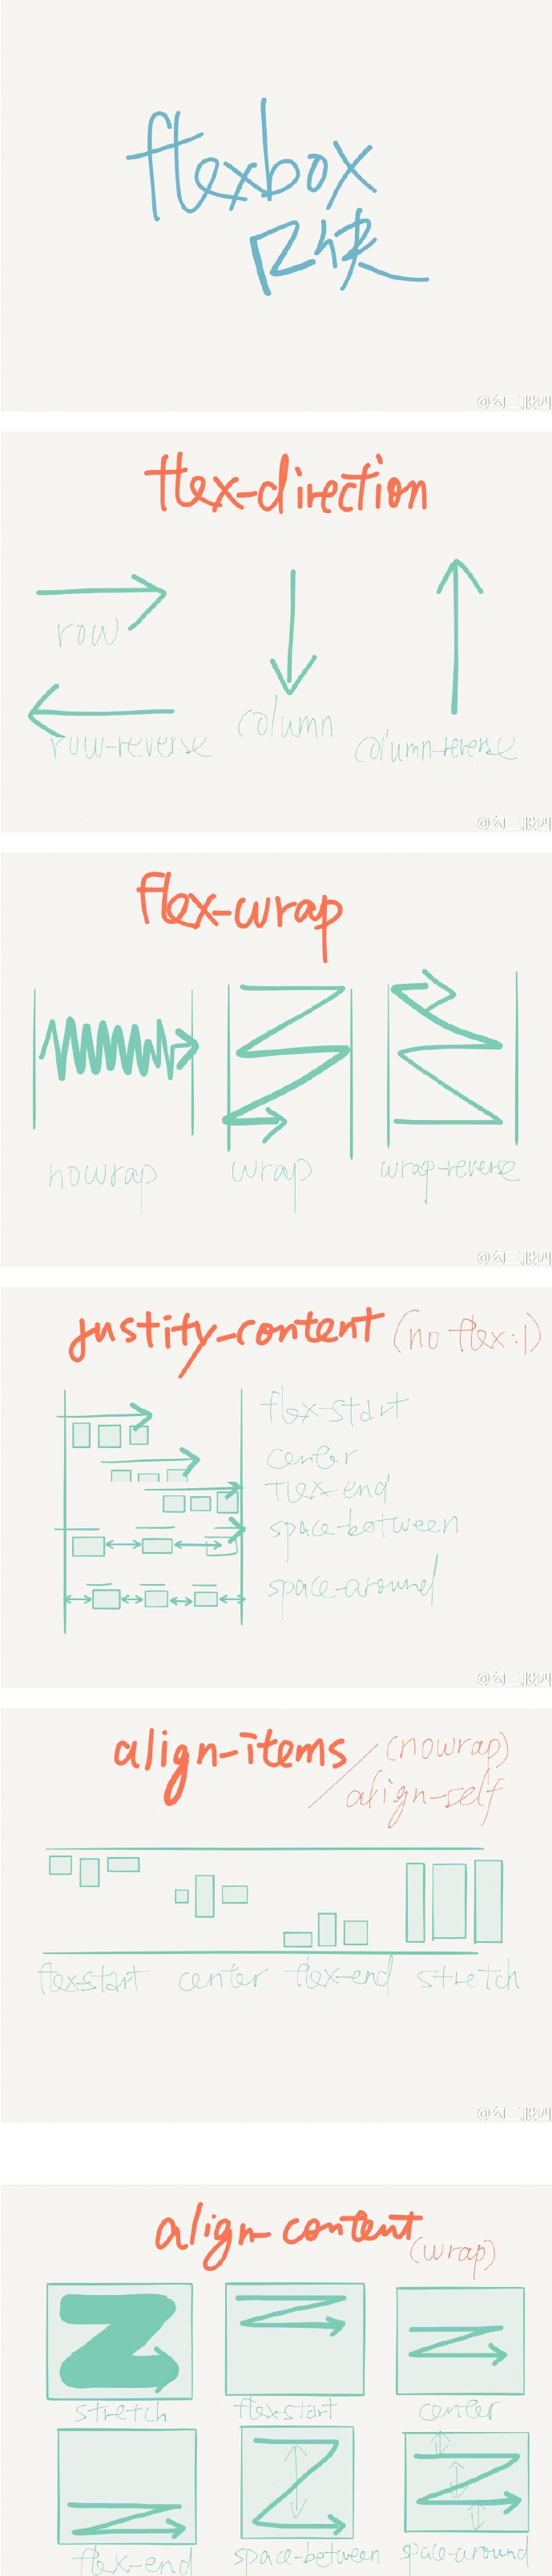 flexbox
口快
flex-direction
row
column
row-reverse
column-reverse
flex-wrap
nowrap
wrap
wrap-reverse
justify-content (no flex:1)
flex-start
center
flex-end
space-between
space-around
align-items / (nowrap)
align-self
flex-start center flex-end stretch
align-content
(wrap)
stretch
flex-start
center
flex-end
space-between
space-around